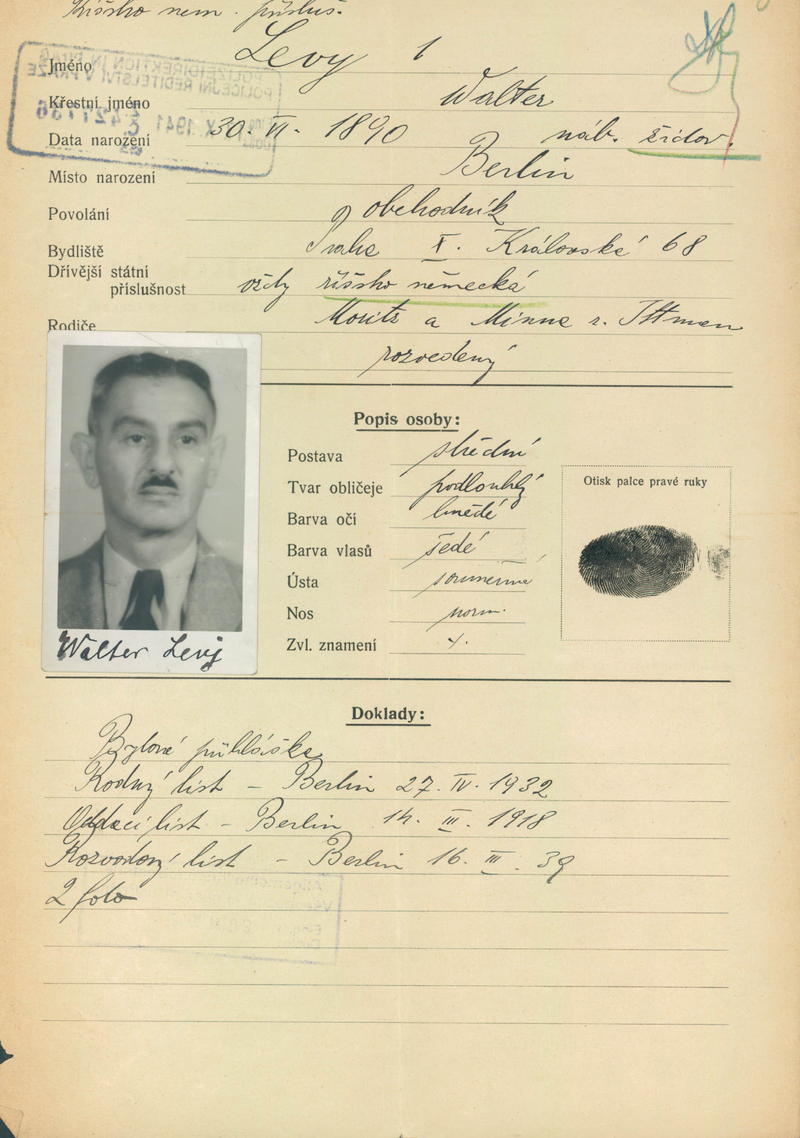 Říšsko něm. přísluš.
Jméno Levy 1
Křestní jméno Walter
Data narození 30. VI. 1890 náb. židov.
Místo narození Berlin
Povolání obchodník
Bydliště Praha X. Královská 68
Dřívější státní
příslušnost vždy říšsko německá
Rodiče Moritz a Minna r.
rozvedený
Popis osoby:
Postava střední
Tvar obličeje podlouhlý
Barva očí hnědé
Barva vlasů šedé
Ústa souměrná
Nos norm.
Zvl. znamení
Otisk palce pravé ruky
Walter Levy
Doklady:
Bytová přihláška
Rodný list – Berlin 27. IV. 1932
Oddací list – Berlin 14. III. 1918
Rozvodový list – Berlin 16. III. 39
2 foto
POLIZEIDIREKTION IN PRAG
POLICEJNÍ ŘEDITELSTVÍ V PRAZE
1941